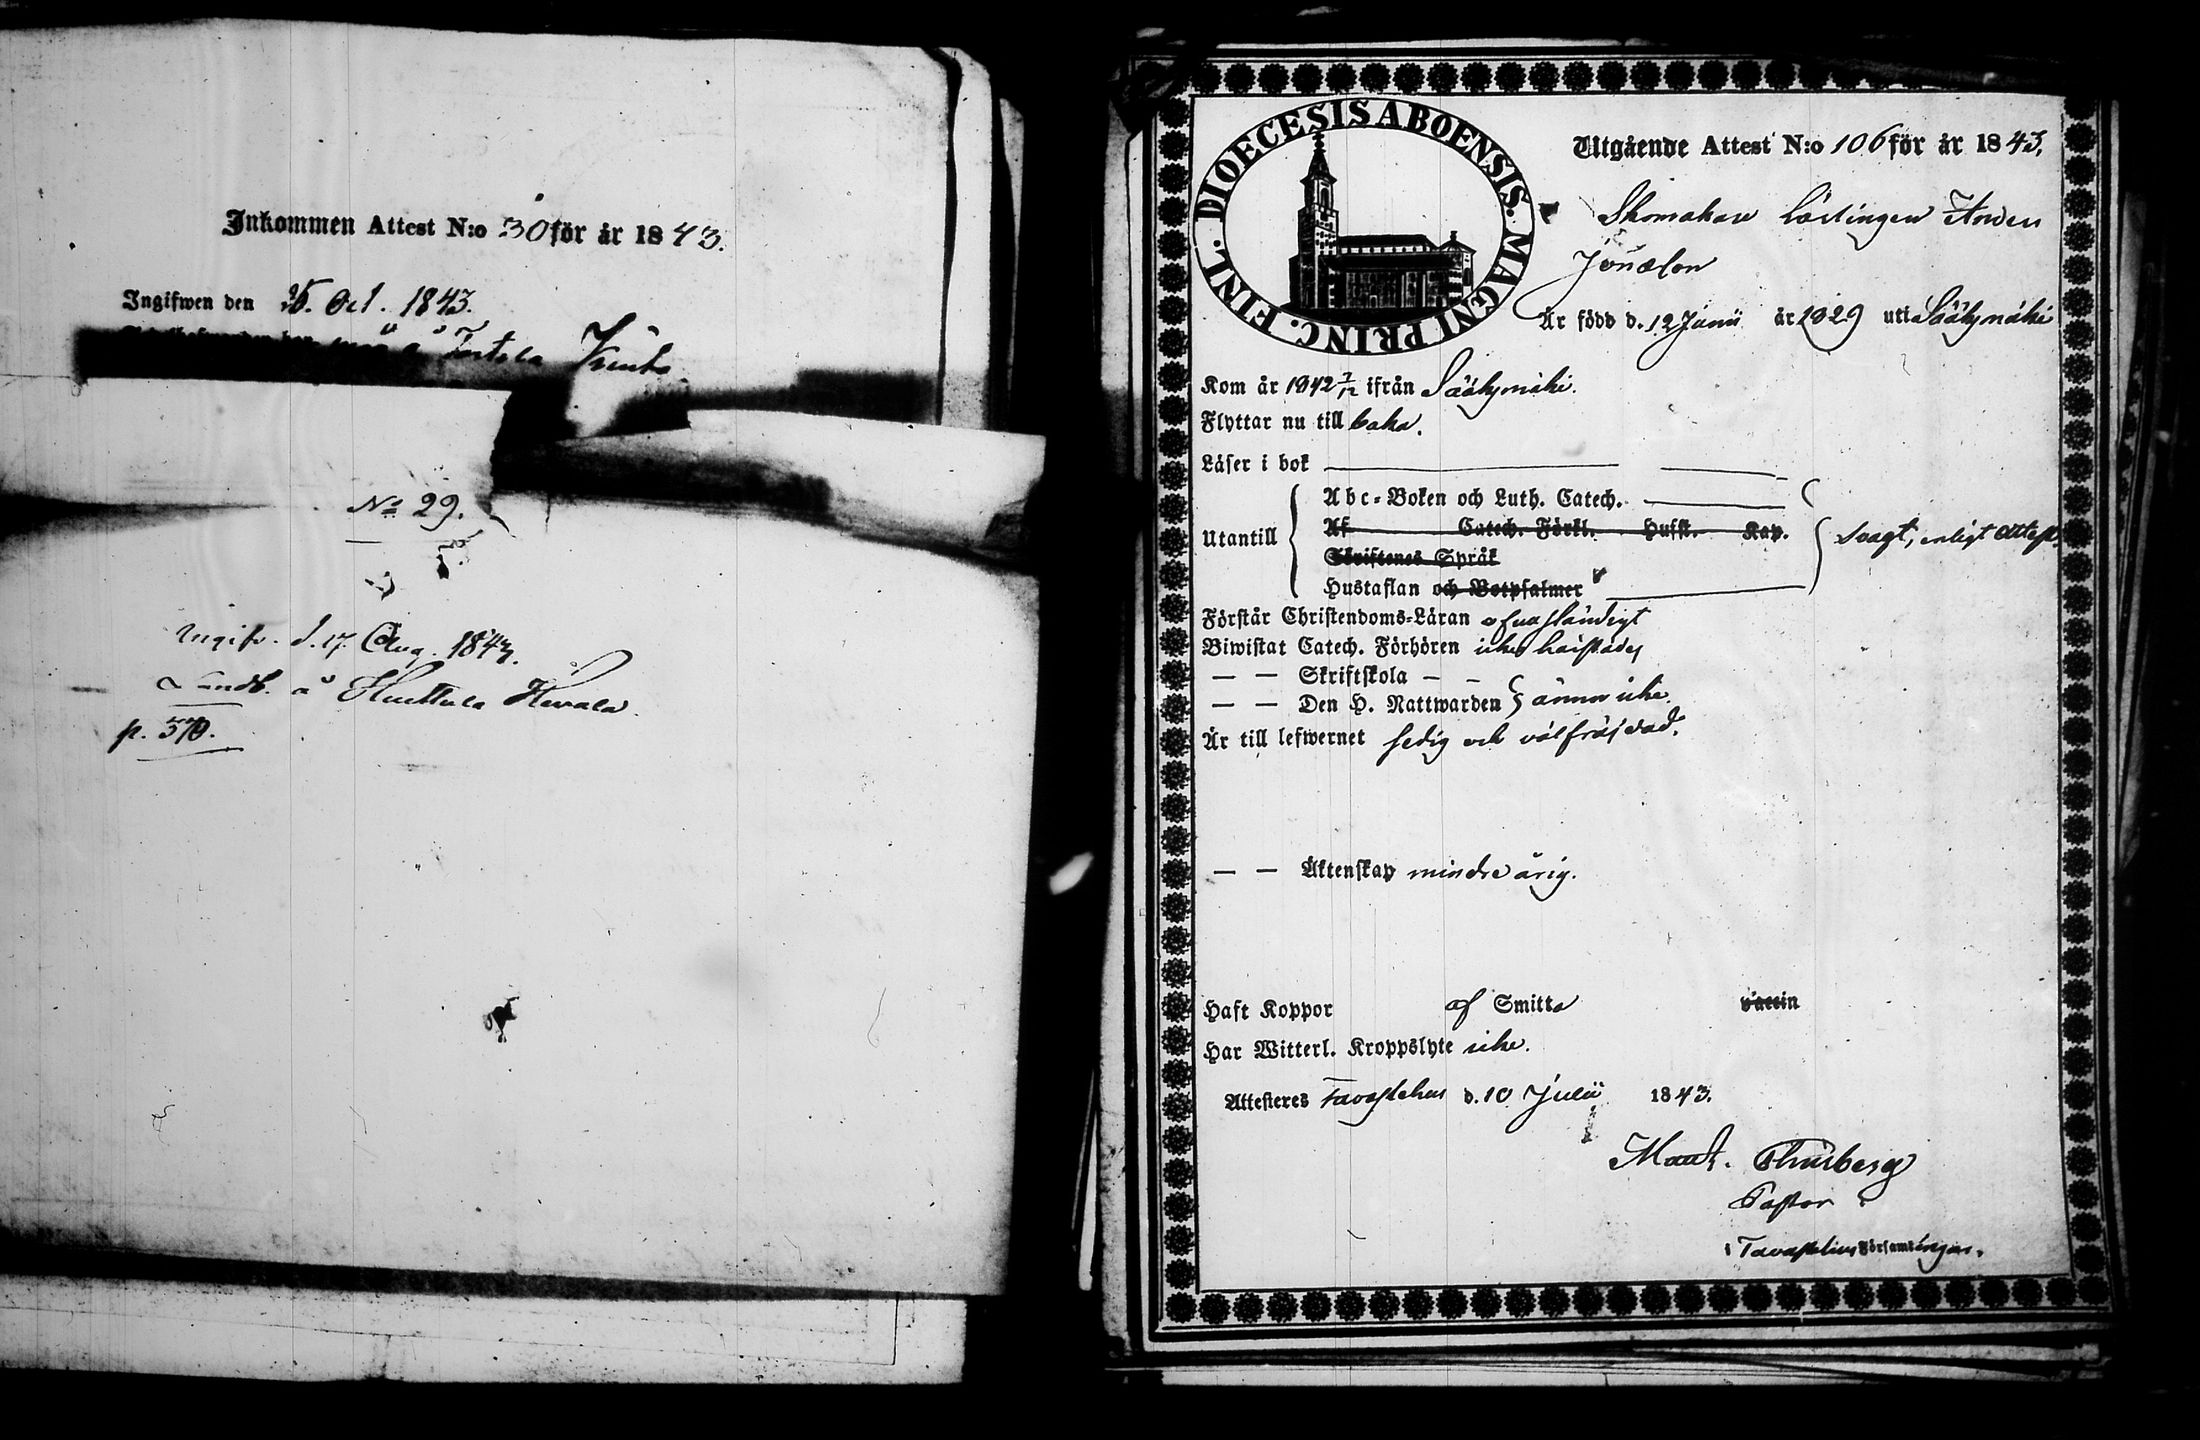 Inkommen Attest N:o 30 för år 1843.
Ingifwen den 26. Oct. 1843.
å Tortola
No 29.
Ingifv. d. 17 Aug. 1843.
å Huttula Hevala.
p. 570.
DIOECESIS ABOENSIS. MAGNI PRINC. FINL.
Utgående Attest N:o 106 för år 1843.
Skomakare Lärlingen Anders
Jonasson
Är född d. 12 Junii år 1829 uti Sääksmäki
Kom år 1842 7/12 ifrån Sääksmäki.
Flyttar nu till baka.
Läser i bok
Abc-Boken och Luth. Catech.
Utantill Af Catech. Förkl. Husft. Kap. svagt, enligt attest.
Skriftenes Språk
Hustaflan och Botpsalmer
Förstår Christendoms-Läran ofvaständigt
Biwistat Catech. Förhören icke härstädes
— — Skriftskola — —
— — Den H. Nattwarden ännu icke.
Är till lefwernet sedig och välfräjdad.
— — Äktenskap minderårig.
Haft Koppor af Smitta vaccin
Har Witterl. Kroppslyte icke.
Attesteres Tavastehus d. 10 Julii 1843.
Thurberg
Pastor
i Tavastehus Församlingar.